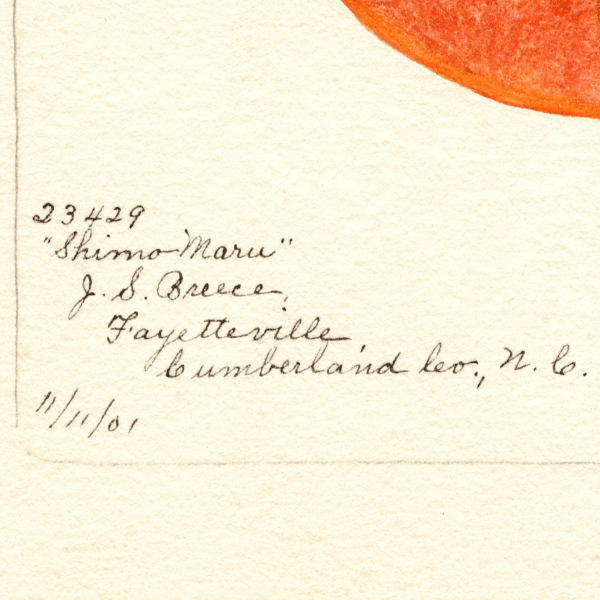 23429
"Shimo-Maru"
J. S. Breece,
Fayetteville,
Cumberland Co., N. C.
11/11/01